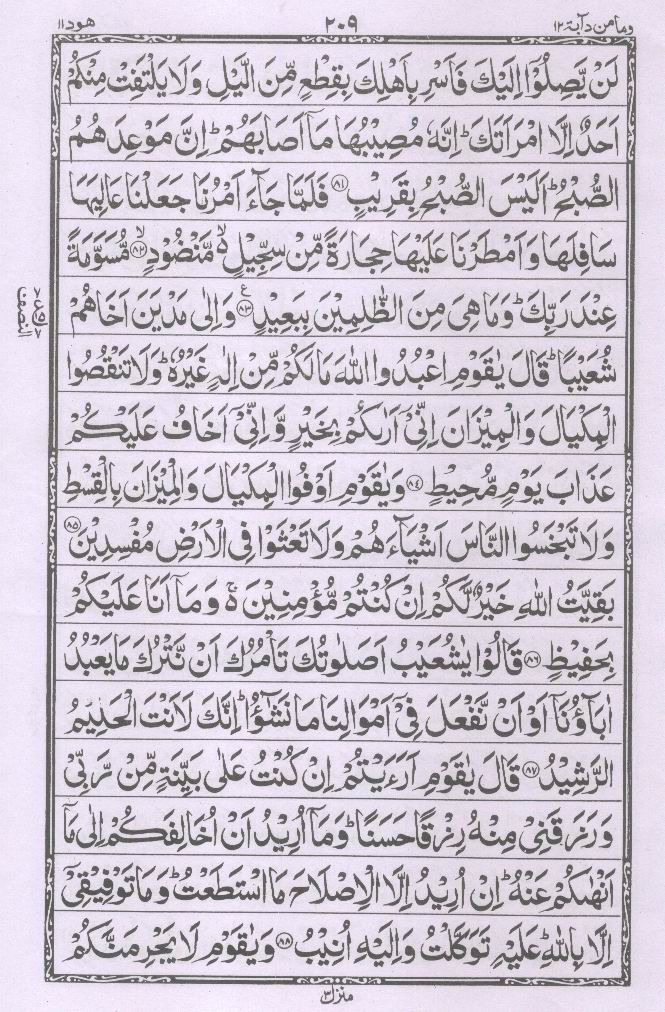 وما من دآبة ١٢ ٢٠٩ هود ١١
لَنْ يَّصِلُوْۤا اِلَيْكَ فَاَسْرِ بِاَهْلِكَ بِقِطْعٍ مِّنَ الَّيْلِ وَلَا يَلْتَفِتْ مِنْكُمْ
اَحَدٌ اِلَّا امْرَاَتَكَ ؕ اِنَّهٗ مُصِيْبُهَا مَاۤ اَصَابَهُمْ ؕ اِنَّ مَوْعِدَهُمُ
الصُّبْحُ ؕ اَلَيْسَ الصُّبْحُ بِقَرِيْبٍ ﴿٨١﴾ فَلَمَّا جَآءَ اَمْرُنَا جَعَلْنَا عَالِيَهَا
سَافِلَهَا وَاَمْطَرْنَا عَلَيْهَا حِجَارَةً مِّنْ سِجِّيْلٍ ۙ مَّنْضُوْدٍ ۙ﴿٨٢﴾ مُّسَوَّمَةً
عِنْدَ رَبِّكَ ؕ وَمَا هِىَ مِنَ الظّٰلِمِيْنَ بِبَعِيْدٍ ﴿٨٣﴾ ع وَاِلٰى مَدْيَنَ اَخَاهُمْ
شُعَيْبًا ؕ قَالَ يٰقَوْمِ اعْبُدُوا اللّٰهَ مَا لَكُمْ مِّنْ اِلٰهٍ غَيْرُهٗ ؕ وَلَا تَنْقُصُوا
الْمِكْيَالَ وَالْمِيْزَانَ اِنِّىْۤ اَرٰىكُمْ بِخَيْرٍ وَّاِنِّىْۤ اَخَافُ عَلَيْكُمْ
عَذَابَ يَوْمٍ مُّحِيْطٍ ﴿٨٤﴾ وَيٰقَوْمِ اَوْفُوا الْمِكْيَالَ وَالْمِيْزَانَ بِالْقِسْطِ
وَلَا تَبْخَسُوا النَّاسَ اَشْيَآءَهُمْ وَلَا تَعْثَوْا فِى الْاَرْضِ مُفْسِدِيْنَ ﴿٨٥﴾
بَقِيَّتُ اللّٰهِ خَيْرٌ لَّكُمْ اِنْ كُنْتُمْ مُّؤْمِنِيْنَ ۚ وَمَاۤ اَنَا عَلَيْكُمْ
بِحَفِيْظٍ ﴿٨٦﴾ قَالُوْا يٰشُعَيْبُ اَصَلٰوتُكَ تَاْمُرُكَ اَنْ نَّتْرُكَ مَا يَعْبُدُ
اٰبَآؤُنَاۤ اَوْ اَنْ نَّفْعَلَ فِىْۤ اَمْوَالِنَا مَا نَشٰٓؤُا ؕ اِنَّكَ لَاَنْتَ الْحَلِيْمُ
الرَّشِيْدُ ﴿٨٧﴾ قَالَ يٰقَوْمِ اَرَءَيْتُمْ اِنْ كُنْتُ عَلٰى بَيِّنَةٍ مِّنْ رَّبِّىْ
وَرَزَقَنِىْ مِنْهُ رِزْقًا حَسَنًا ؕ وَمَاۤ اُرِيْدُ اَنْ اُخَالِفَكُمْ اِلٰى مَاۤ
اَنْهٰىكُمْ عَنْهُ ؕ اِنْ اُرِيْدُ اِلَّا الْاِصْلَاحَ مَا اسْتَطَعْتُ ؕ وَمَا تَوْفِيْقِىْۤ
اِلَّا بِاللّٰهِ ؕ عَلَيْهِ تَوَكَّلْتُ وَاِلَيْهِ اُنِيْبُ ﴿٨٨﴾ وَيٰقَوْمِ لَا يَجْرِمَنَّكُمْ
منزل ٣
النصف